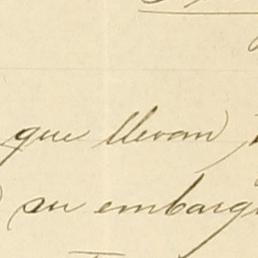 que llevan,
su embarg